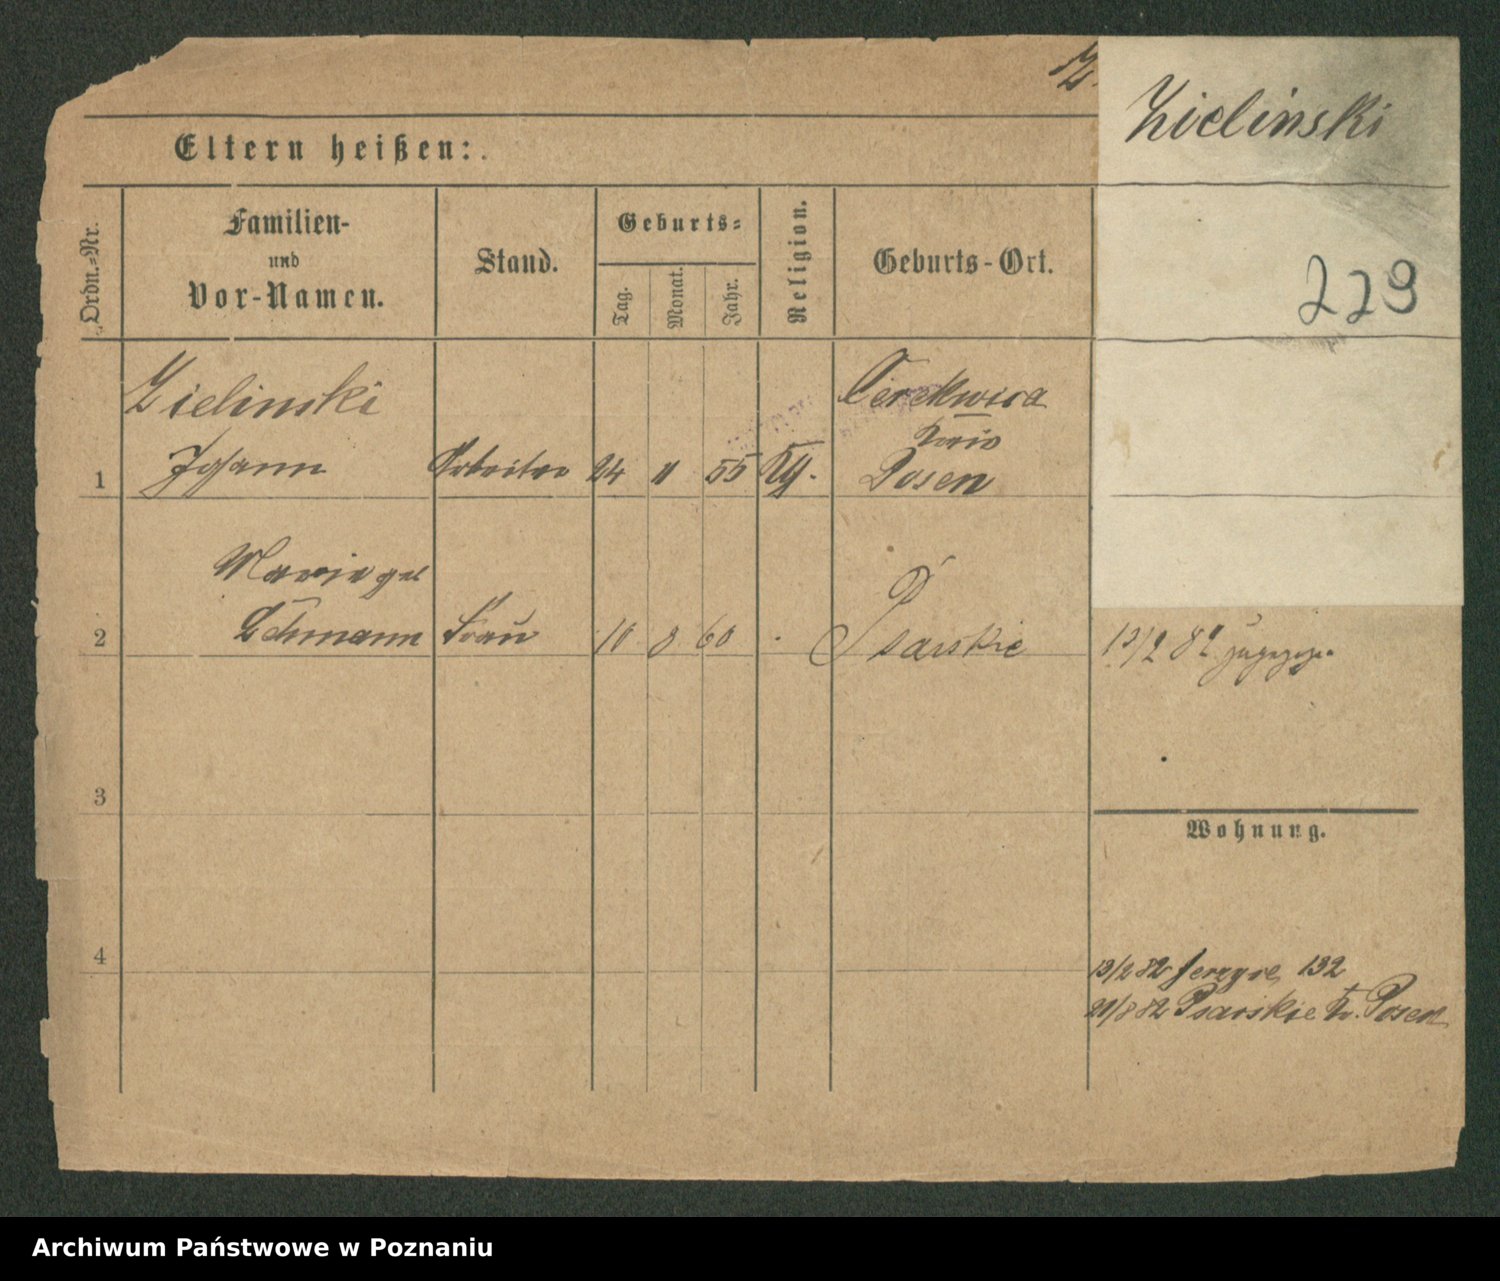 Zielinski
229
Eltern heißen:
Ordn.-Nr.
Familien-
und
Vor-Namen.
Stand.
Geburts-
Tag.
Monat.
Jahr.
Religion.
Geburts-Ort.
Zielinski
Johann
1
Arbeiter
24
55
Cerekwica
Kreis
Posen
Marie geb
Lehmann
2
Frau
10 8 60
Psarskie
13/2 82
3
Wohnung.
4
13/2 82 Jerzyce 132
21/8 82 Psarskie Kr. Posen
Archiwum Państwowe w Poznaniu